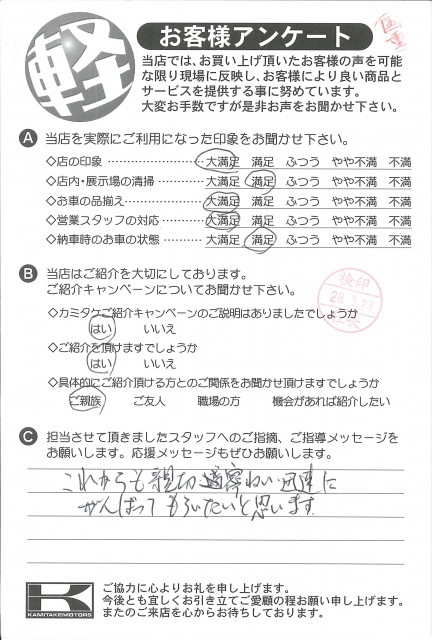 軽
お客様アンケート
当店では、お買い上げ頂いたお客様の声を可能
な限り現場に反映し、お客様により良い商品と
サービスを提供する事に努めています。
大変お手数ですが是非お声をお聞かせ下さい。
A 当店を実際にご利用になった印象をお聞かせ下さい。
◇店の印象 ………………… 大満足 満足 ふつう やや不満 不満
◇店内・展示場の清掃 ……… 大満足 満足 ふつう やや不満 不満
◇お車の品揃え …………… 大満足 満足 ふつう やや不満 不満
◇営業スタッフの対応 ……… 大満足 満足 ふつう やや不満 不満
◇納車時のお車の状態 ……… 大満足 満足 ふつう やや不満 不満
B 当店はご紹介を大切にしております。
ご紹介キャンペーンについてお聞かせ下さい。
検印
28.3.24
◇カミタケご紹介キャンペーンのご説明はありましたでしょうか
はい いいえ
◇ご紹介を頂けますでしょうか
はい いいえ
◇具体的にご紹介頂ける方とのご関係をお聞かせ頂けますでしょうか
ご親族 ご友人 職場の方 機会があれば紹介したい
C 担当させて頂きましたスタッフへのご指摘、ご指導メッセージを
お願いします。応援メッセージもぜひお願いします。
これからも親切
迅速に
がんばってもらいたいと思います
K
KAMITAKEMOTORS
ご協力に心よりお礼を申し上げます。
今後とも宜しくお引き立てご愛顧の程お願い申し上げます。
またのご来店を心からお待ちしております。